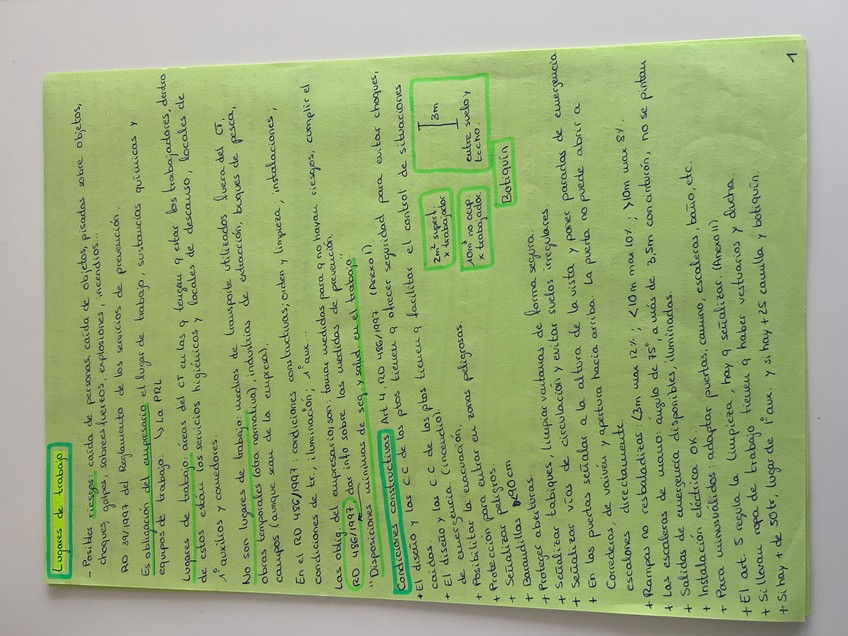 Lugares de trabajo:
- Posibles riesgos: caída de personas, caída de objetos, pisadas sobre objetos,
choques, golpes, sobresfuerzos, explosiones, incendios...
RD 39/1997 del Reglamento de los servicios de prevención.
Es obligación del empresario el lugar de trabajo, sustancias químicas y
equipos de trabajo ↳ La PRL
Lugares de trabajo: áreas del CT en las q tengan q estar los trabajadores, dentro
de estos están los servicios higiénicos y locales de descanso, locales de
1º auxilios y comedores.
No son lugares de trabajo: medios de transporte utilizados fuera del CT,
obras temporales (otra normativa), industrias de extracción, buques de pesca,
campos (aunque sean de la empresa).
En el RD 486/1997: condiciones constructivas; orden y limpieza; instalaciones;
condiciones de tr.; iluminación; 1º aux...
Las oblig del empresario, son: tomar medidas para q no hayan riesgos, cumplir el
RD 486/1997, dar info sobre las medidas de prevención.
"Disposiciones mínimas de seg. y salud en el trabajo"
Condiciones constructivas Art 4, RD 486/1997 (Anexo I)
+ El diseño y las c.c de los ptos tienen q ofrecer seguridad para evitar choques,
caídas
+ El diseño y las c.c de los ptos tienen q facilitar el control de situaciones
de emergencia. (incendio).
+ Posibilitar la evacuación.
+ Protección para entrar en zonas peligrosas.
+ Señalizar peligros.
+ Barandillas 90cm
+ Proteger aberturas.
2m² superf.
x trabajador
10m³ no ocup
x trabajador
3m
entre suelo y
techo.
Botiquín
+ Señalizar tabiques, limpiar ventanas de forma segura.
+ Señalizar vías de circulación y evitar suelos irregulares.
+ En las puertas señalar a la altura de la vista y poner paradas de emergencia
Correderas, de vaivén y apertura hacia arriba. La puerta no puede abrir a
escalones directamente
+ Rampas no resbaladizas: <3m max 12%; <10m max 10%; >10m max 8%.
+ Las escaleras de mano: ángulo de 75º, a más de 3,5m con cinturón, no se pintan
+ Salidas de emergencia disponibles, iluminadas.
+ Instalación eléctrica OK.
+ Para minusválidos: adaptar puertas, camino, escaleras, baño, etc.
+ El art. 5 regula la limpieza, hay q señalizar. (Anexo II)
+ Si llevan ropa de trabajo tienen q haber vestuarios y ducha.
+ Si hay + de 50 tr, lugar de 1º aux. y si hay + 25 camilla y botiquín.
1